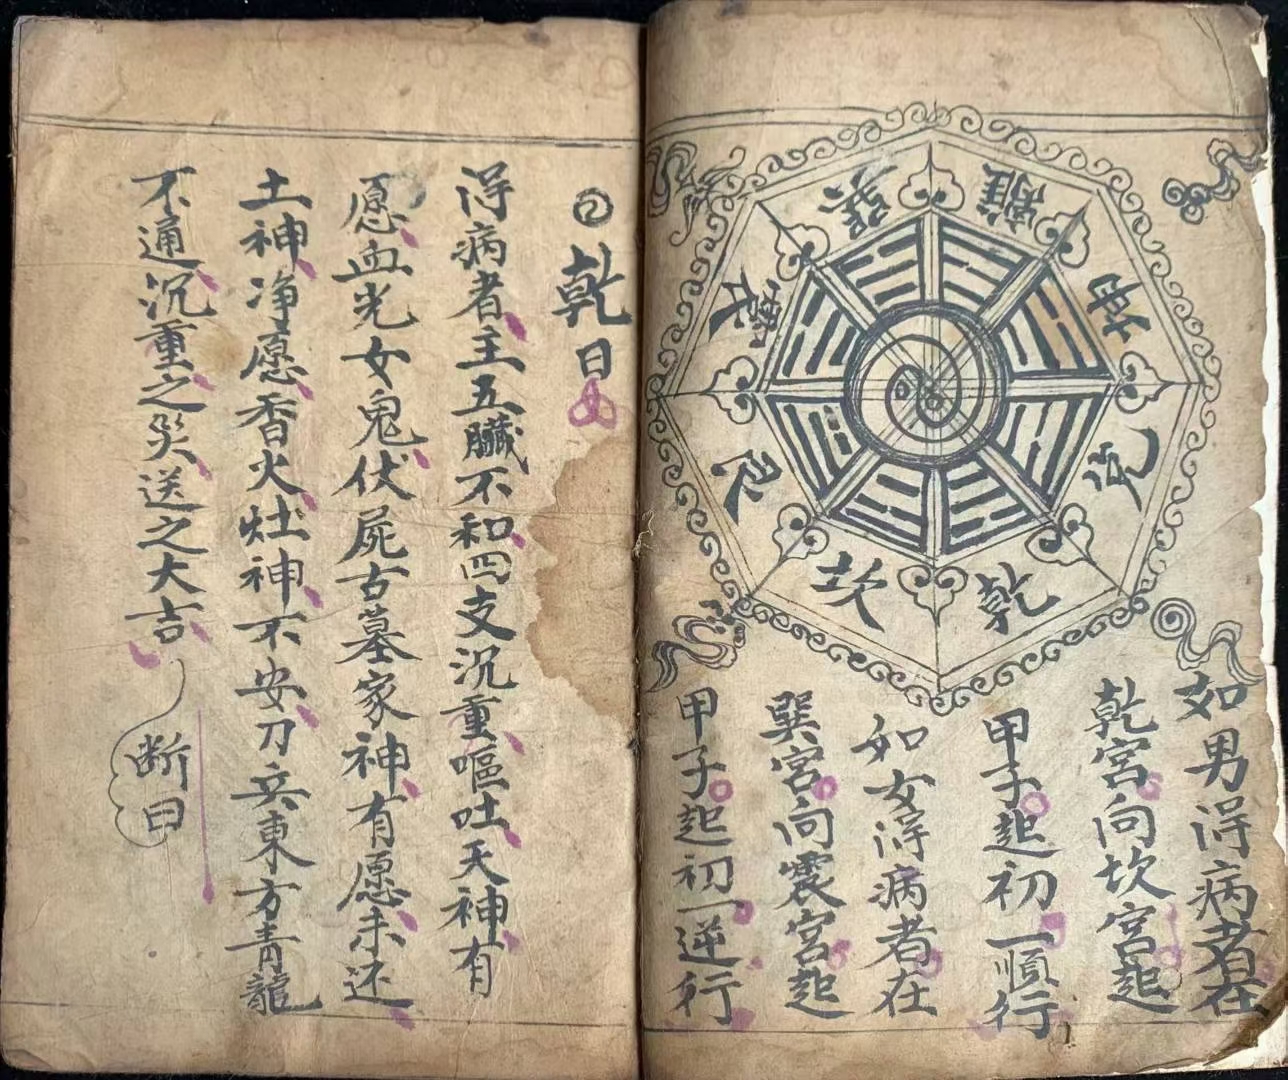 離
坤
兌
乾
坎
艮
震
巽
如男淂病者在
乾宮向坎宮起
甲子起初一順行
如女淂病者在
巽宮向震宮起
甲子起初一逆行
乾日
淂病者主五臟不和四支沉重嘔吐天神有
愿血光女鬼伏屍古墓家神有愿未还
土神净愿香火灶神不安刀兵東方青龍
不通沉重之災送之大吉
断曰